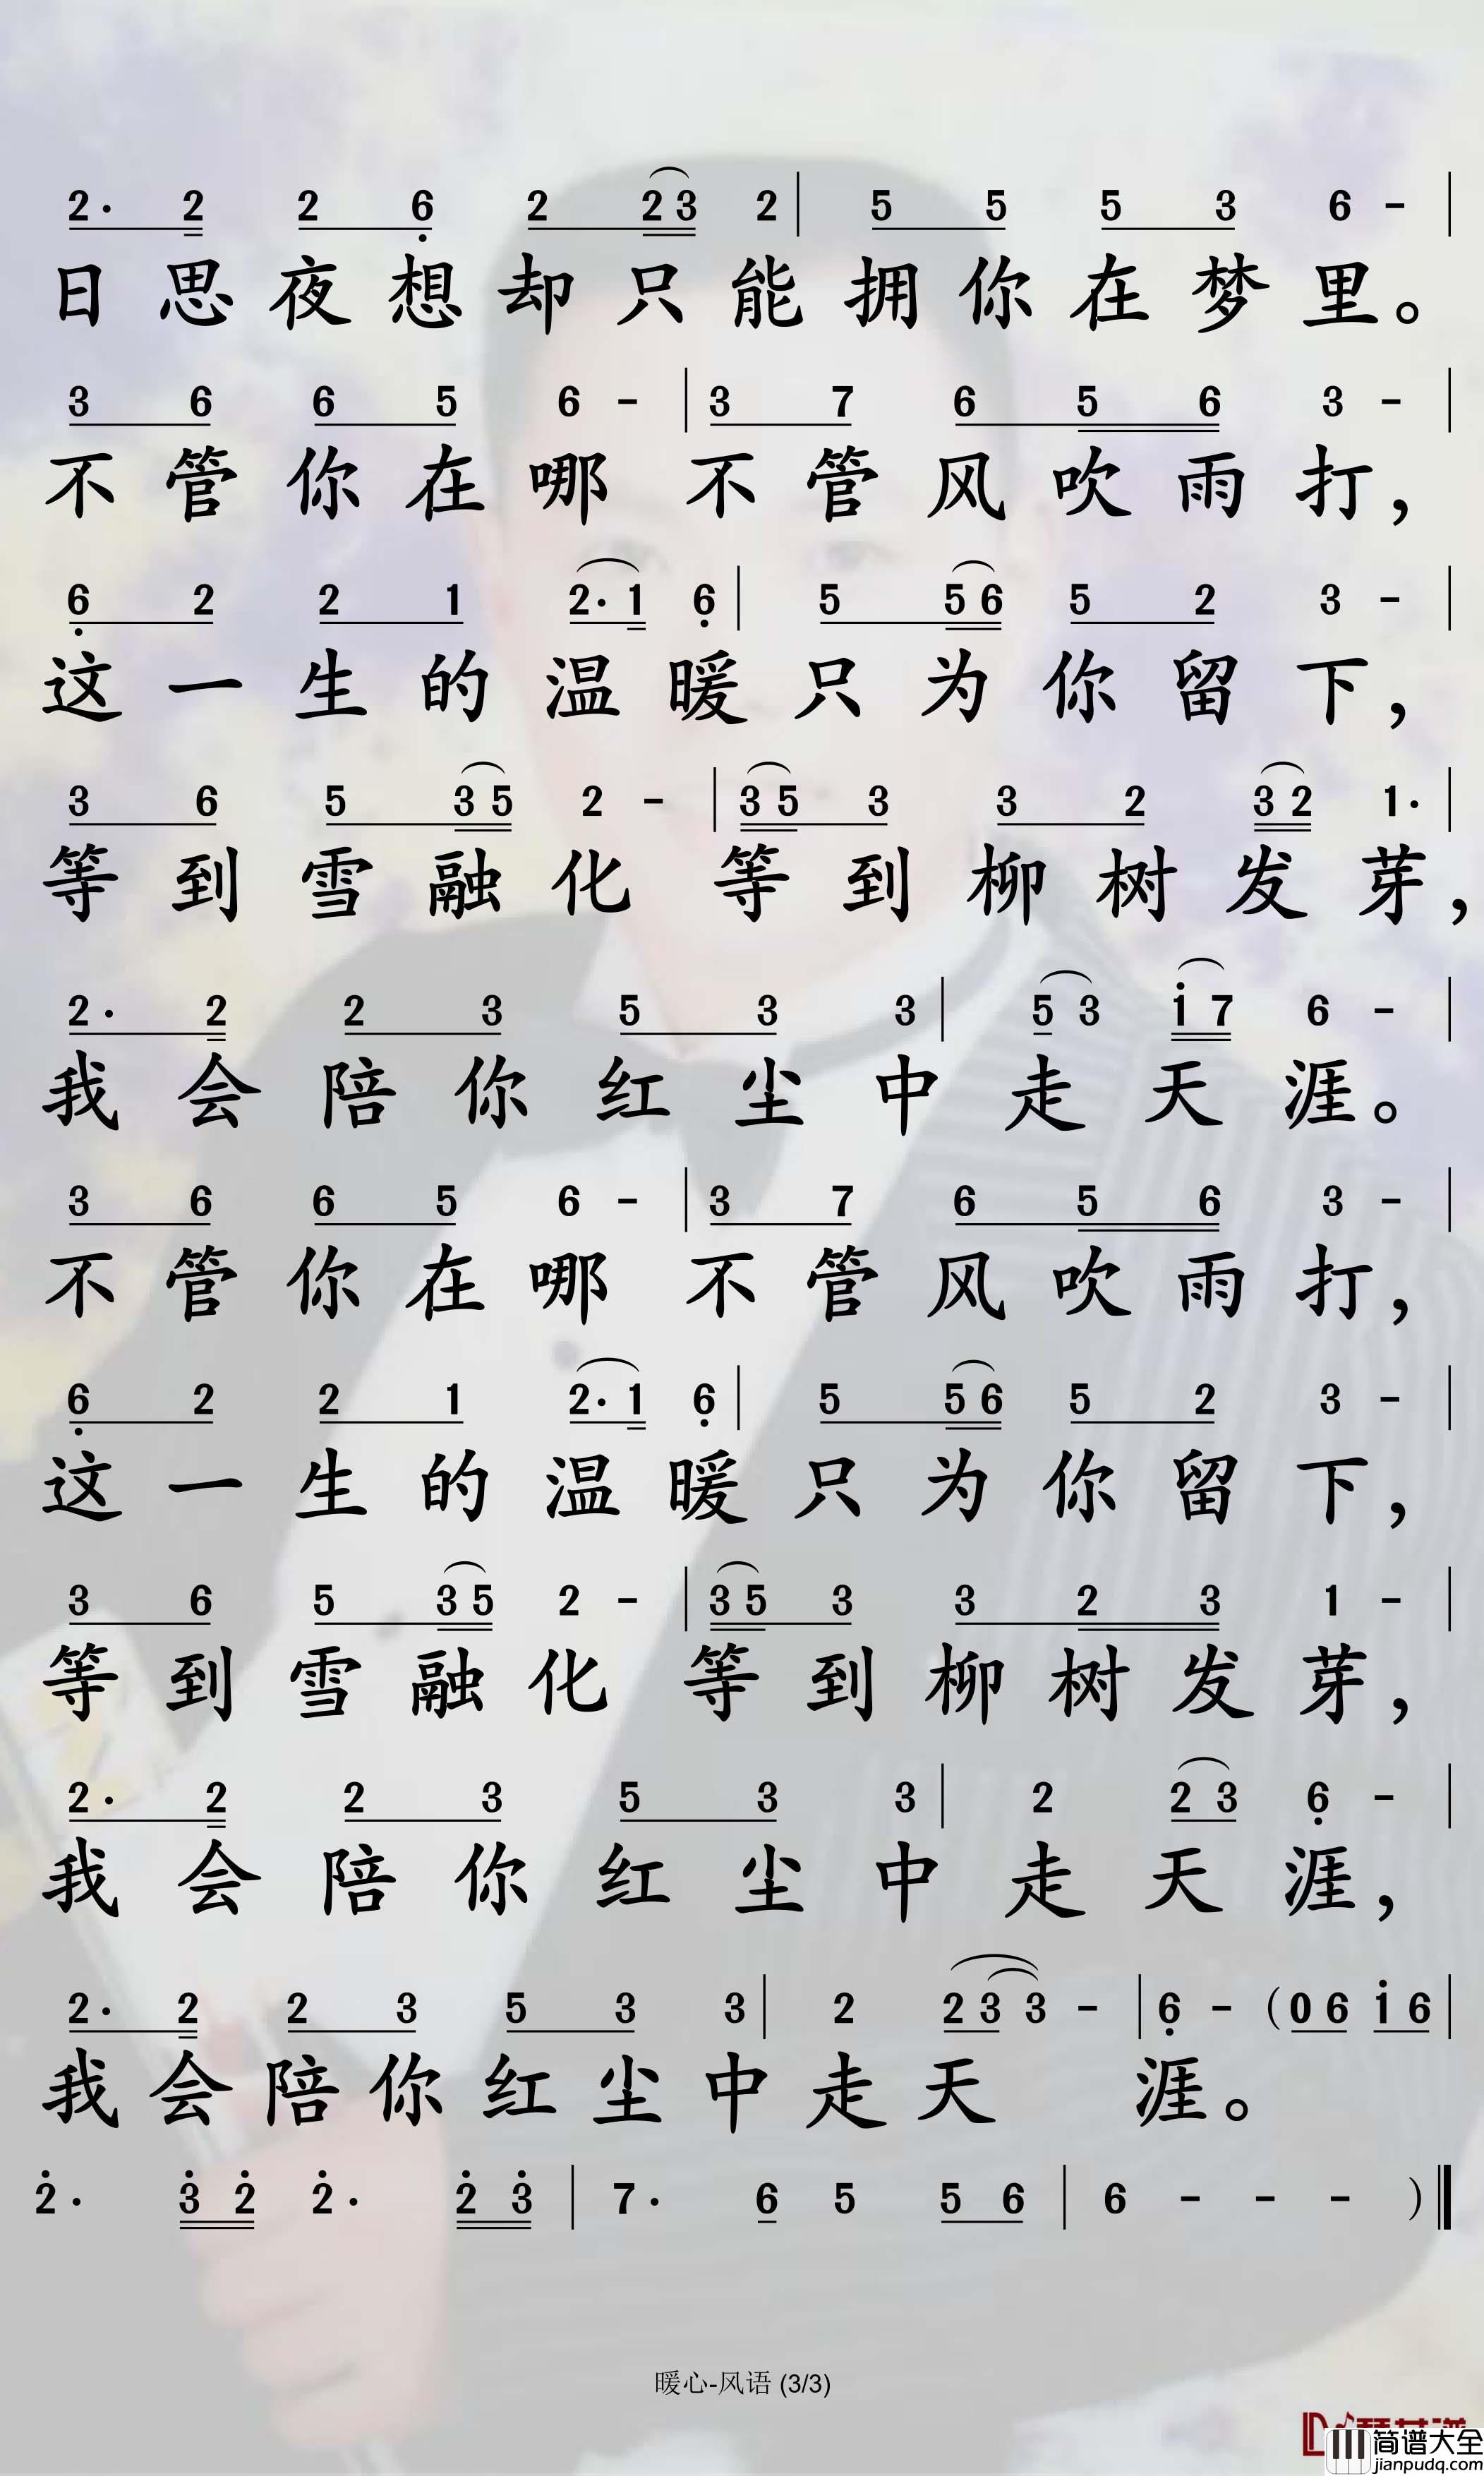 2· 2 2 6̣ 2 2 3 2 | 5 5 5 3 6 - |
日思夜想却只能拥你在梦里。
3 6 6 5 6 - | 3 7 6 5 6 3 - |
不管你在哪 不管风吹雨打，
6̣ 2 2 1 2· 1 6̣ | 5 5 6 5 2 3 - |
这一生的温暖只为你留下，
3 6 5 3 5 2 - | 3 5 3 3 2 3 2 1· |
等到雪融化 等到柳树发芽，
2· 2 2 3 5 3 3 | 5 3 i 7 6 - |
我会陪你红尘中走天涯。
3 6 6 5 6 - | 3 7 6 5 6 3 - |
不管你在哪 不管风吹雨打，
6̣ 2 2 1 2· 1 6̣ | 5 5 6 5 2 3 - |
这一生的温暖只为你留下，
3 6 5 3 5 2 - | 3 5 3 3 2 3 1 - |
等到雪融化 等到柳树发芽，
2· 2 2 3 5 3 3 | 2 2 3 6̣ - |
我会陪你红尘中走天涯，
2· 2 2 3 5 3 3 | 2 2 3 3 - | 6̣ - (0 6 i 6 |
我会陪你红尘中走天 涯。
2̇· 3̇ 2̇ 2̇· 2̇ 3̇ | 7· 6 5 5 6 | 6 - - - )‖
暖心-风语 (3/3)
简谱大全
jianpudq.com